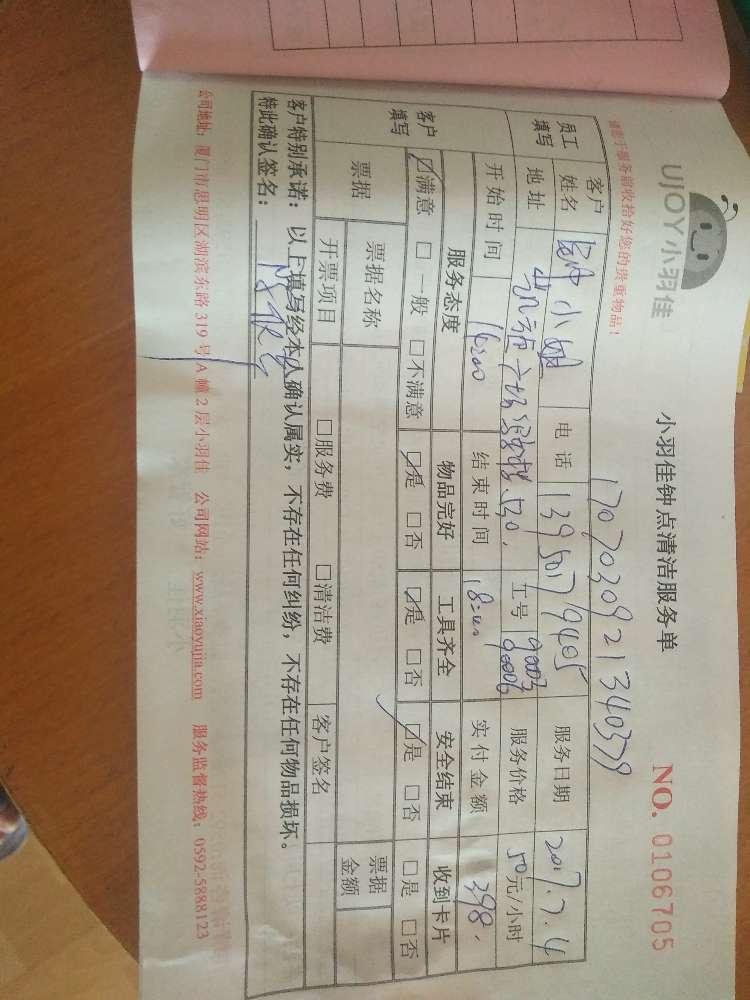 UJOY小羽佳
小羽佳钟点清洁服务单
NO. 0106705
请您于服务前收拾好您的贵重物品!
1707030921340379
员工填写 客户姓名 小姐 电话 13950179405 服务日期 2017.7.4
地址 530. 工号 90003 90006 服务价格 50元/小时
开始时间 14:00 结束时间 18:00 实付金额 398.
客户填写 服务态度 物品完好 工具齐全 安全结束 收到卡片
☑满意 □一般 □不满意 ☑是 □否 ☑是 □否 ☑是 □否 □是 □否
票据 票据名称 票据金额
开票项目 □服务费 □清洁费 客户签名
客户特别承诺:以上填写经本人确认属实,不存在任何纠纷,不存在任何物品损坏。
特此确认签名:
公司地址:厦门市思明区湖滨东路319号A幢2层小羽佳 公司网站:www.xiaoyujia.com 服务监督热线:0592-5888123